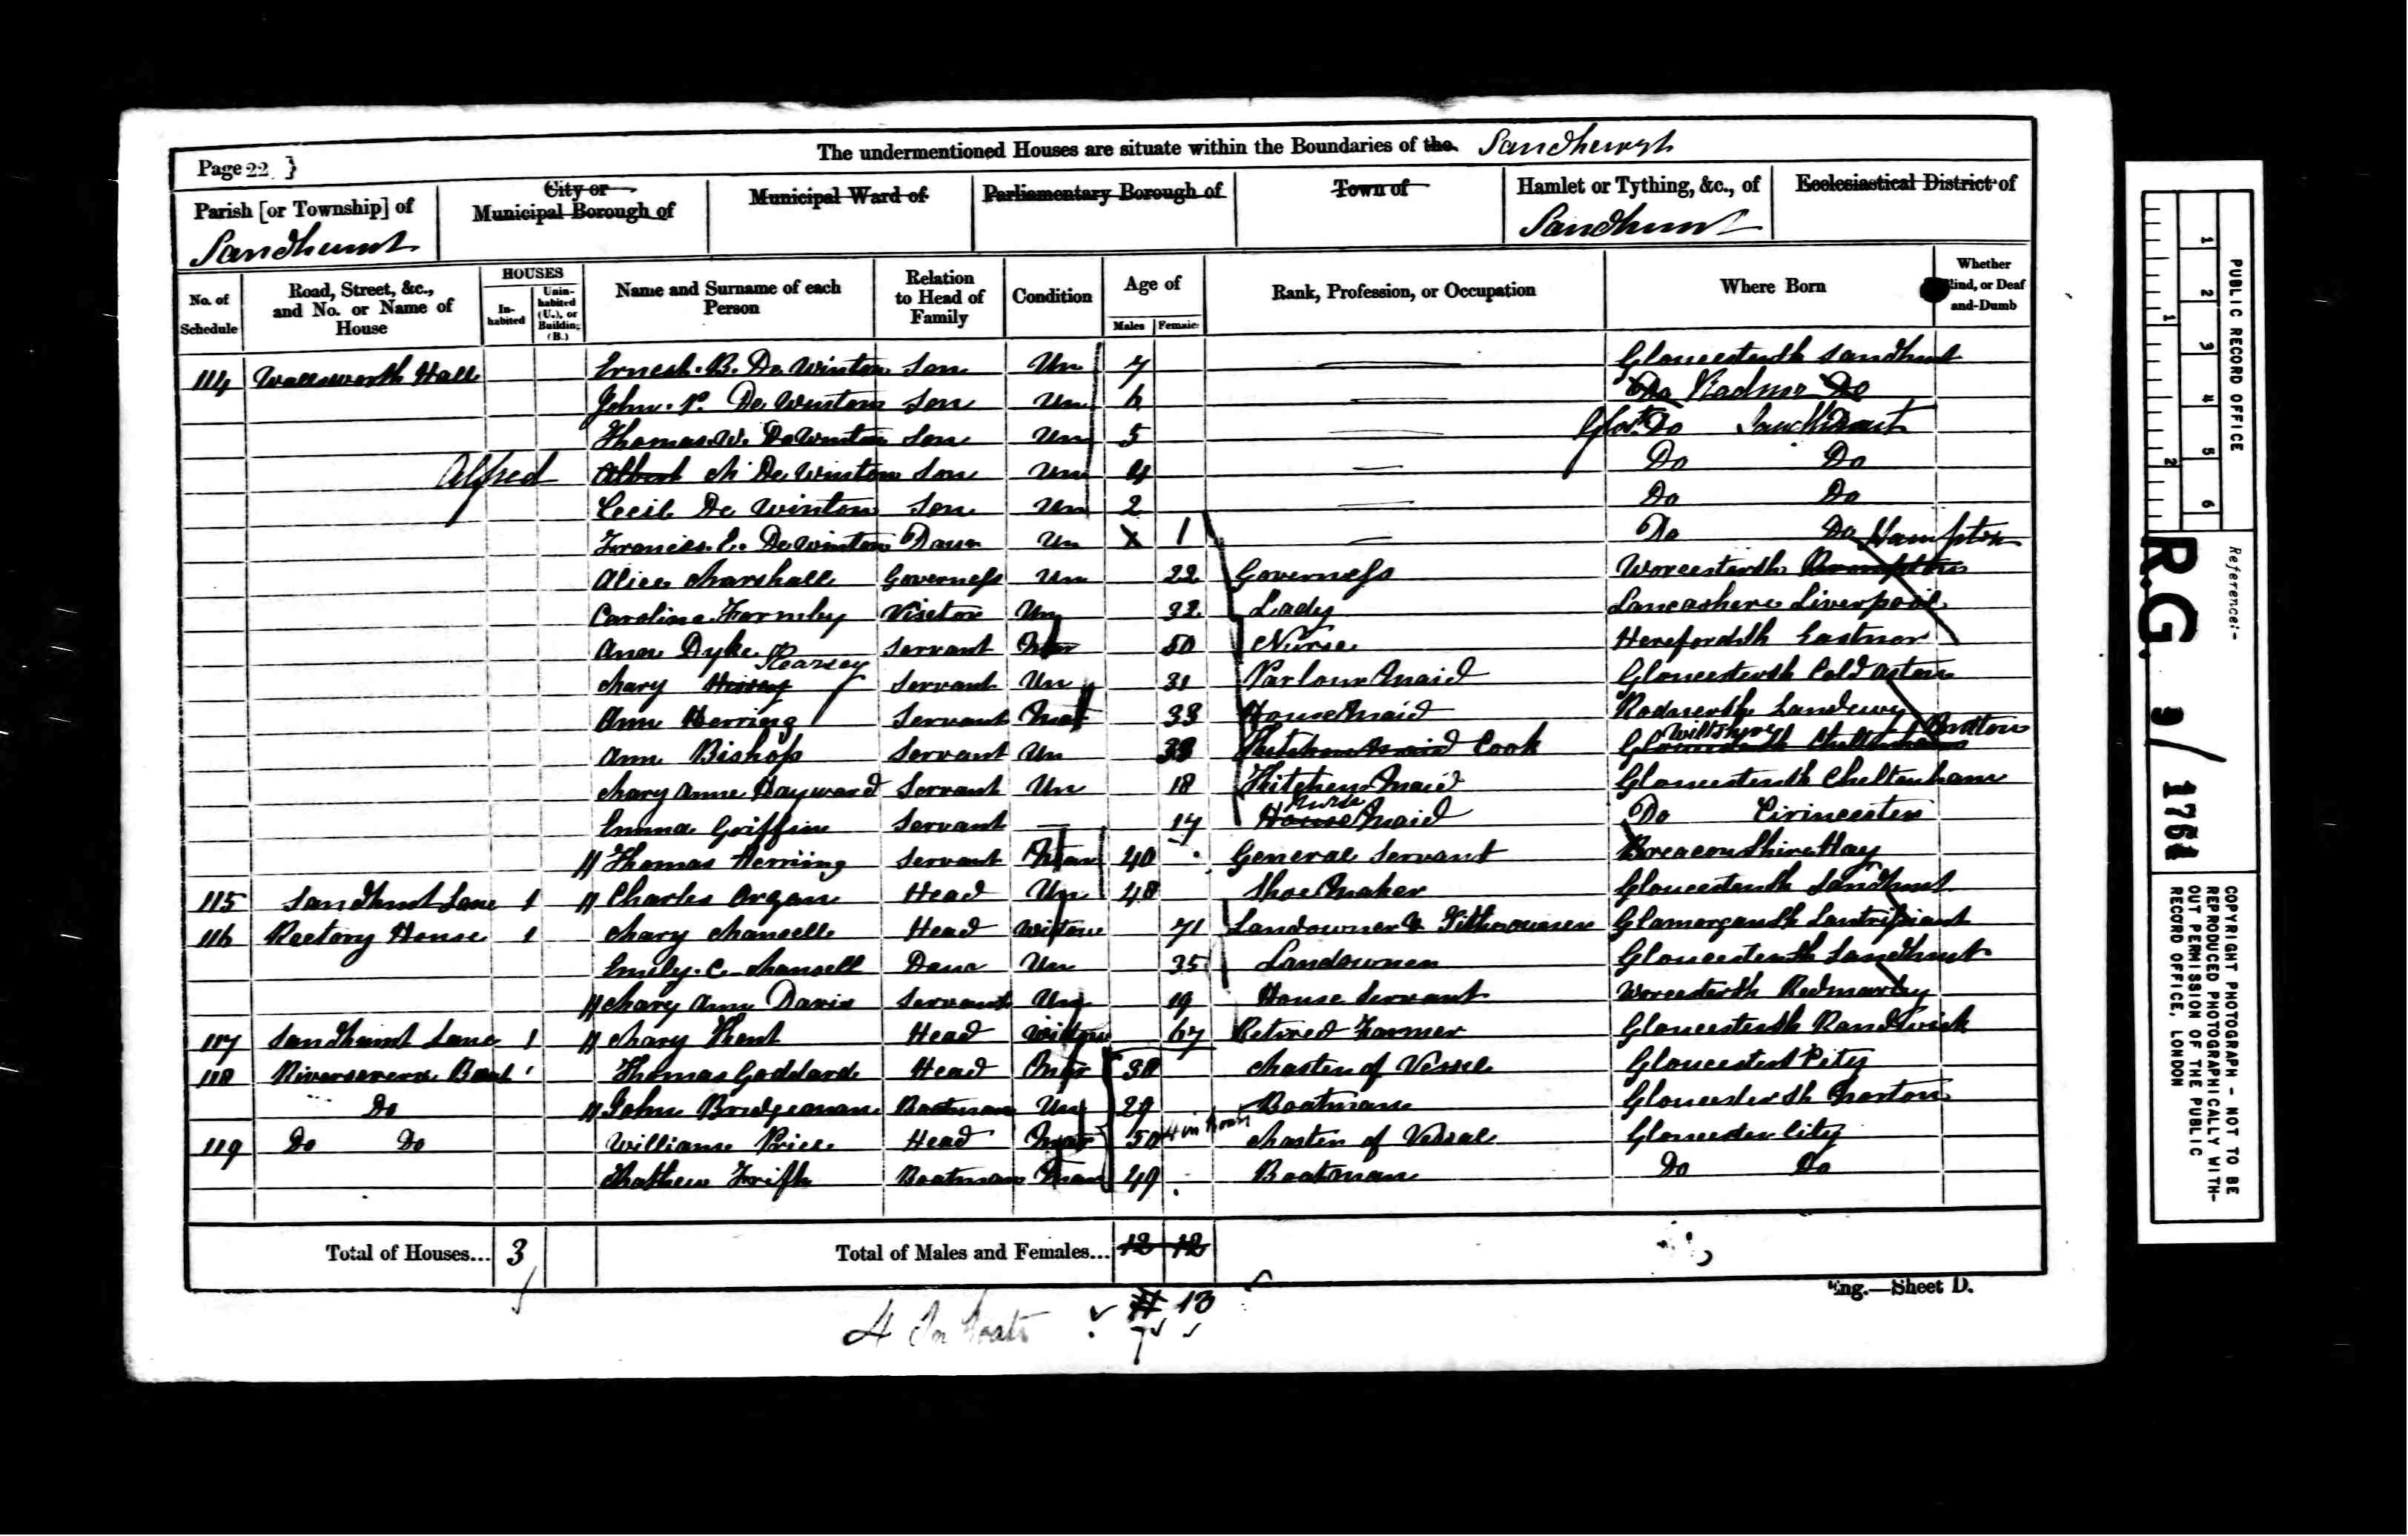 The undermentioned Houses are situate within the Boundaries of the Sandhurst
Page 22 }
Parish [or Township] of
Sandhurst
City or
Municipal Borough of
Municipal Ward of
Parliamentary Borough of
Town of
Hamlet or Tything, &c., of
Sandhurst
Ecclesiastical District of
No. of Schedule
Road, Street, &c., and No. or Name of House
HOUSES
In-habited
Unin-habited (U.), or Building (B.)
Name and Surname of each Person
Relation to Head of Family
Condition
Age of
Males Females
Rank, Profession, or Occupation
Where Born
Whether Blind, or Deaf-and-Dumb
114 Wallsworth Hall Ernest. B. De Winton Son Un 7 Gloucestersh Sandhurst
John. P. De Winton Son Un 6 Do Radnor Do
Thomas. W. De Winton Son Un 5 Glos. Do Sandhurst
Alfred Albert M De Winton Son Un 4 Do Do
Cecil De Winton Son Un 2 Do Do
Frances. E. De Winton Daur Un X 1 Do Do
Alice Marshall Governess Un 22 Governess Worcestersh Hampton
Caroline Formby Visitor Un 32 Lady Lancashire Liverpool
Ann Dyke Servant Mar 50 Nurse Herefordsh Eastnor
Mary Kearsey Servant Un 31 Parlour Maid Gloucestersh Cold Aston
Ann Herring Servant Mar 33 House Maid Radnersh
Ann Bishop Servant Un 38 Kitchen Maid Cook Gloucestersh Cheltenham Wiltshire Bratton
Mary Anne Hayward Servant Un 18 Kitchen Maid Gloucestersh Cheltenham
Emma Griffin Servant — 17 House Nurse Maid Do Cirincester
H Thomas Herring Servant Mar 40 General Servant Breaconshire Hay
115 Sandhurst Lane 1 H Charles Organ Head Un 48 Shoe Maker Gloucestersh Sandhurst
116 Rectory House 1 Mary Mansell Head Widow 71 Landowner & Glamorgansh Lantrisiant
Emily. C. Mansell Daur Un 35 Landowner Gloucestersh Sandhurst
H Mary Ann Davis Servant Un 19 House Servant Worcestersh Redmarley
117 Sandhurst Lane 1 H Mary Kent Head Widow 67 Retired Farmer Gloucestersh Randwick
118 Riversevern Boat 1 Thomas Goddard Head Mar 38 Master of Vessel Gloucester City
Do H John Bridgeman Boatman Un 29 Boatman Gloucestersh Norton
119 Do Do William Price Head Mar 50 4 in Boats Master of Vessel Gloucester City
Mathew Frith Boatman Mar 49 Boatman Do Do
Total of Houses... 3
Total of Males and Females... 12 12
Eng.—Sheet D.
4 In boats 13
7
PUBLIC RECORD OFFICE
1 2 3 4 5 6
1 2
Reference:-
R.G. 9/1761
COPYRIGHT PHOTOGRAPH - NOT TO BE REPRODUCED PHOTOGRAPHICALLY WITH-
OUT PERMISSION OF THE PUBLIC
RECORD OFFICE, LONDON